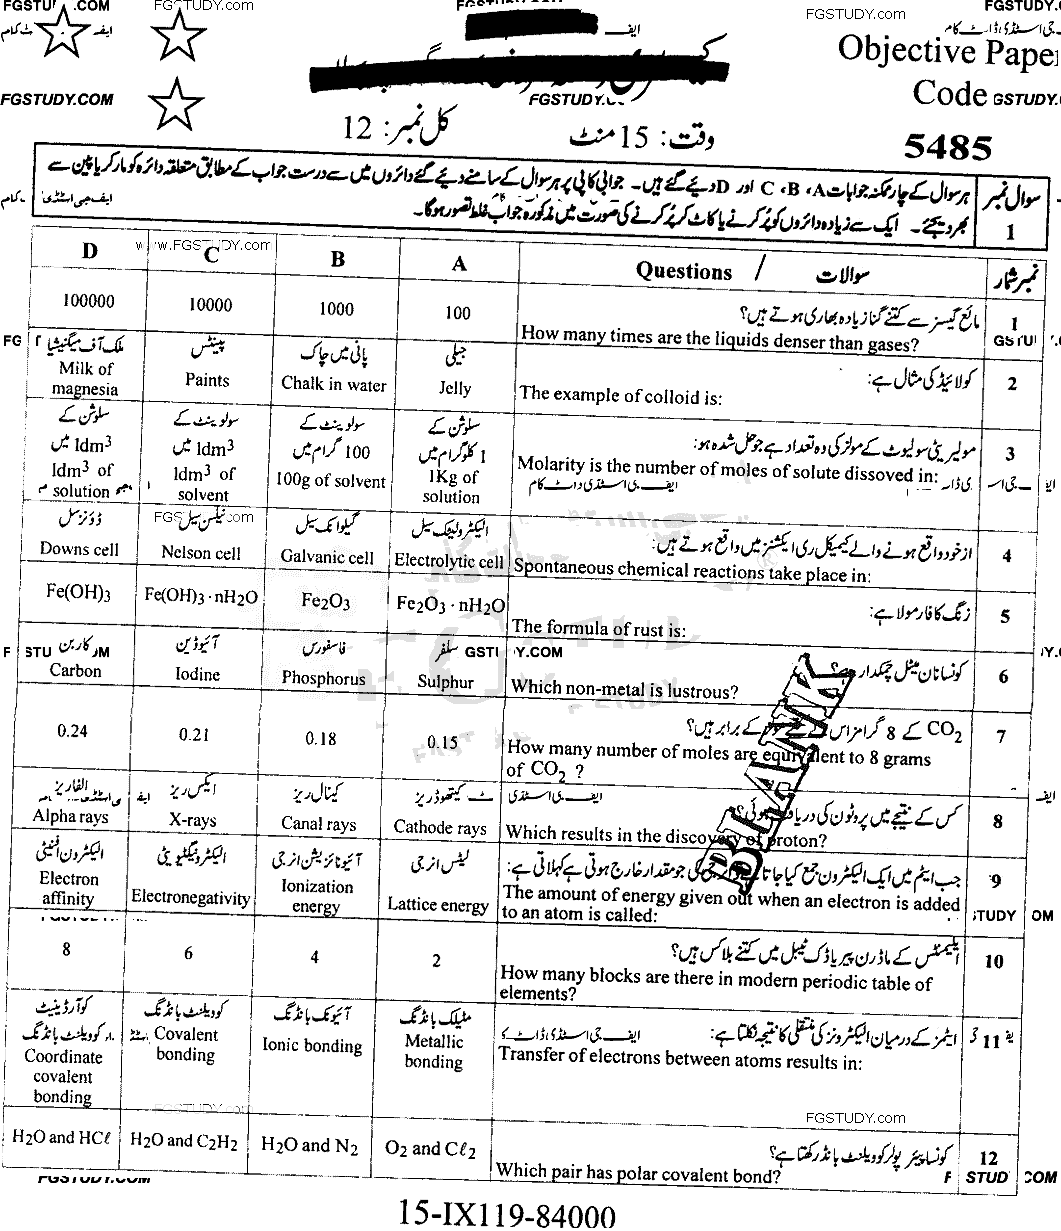 FGSTUDY.COM
FGSTUDY.COM
FGSTUDY.COM
Objective Paper
Code
5485
وقت: 15 منٹ
کل نمبر: 12
FGSTUDY.COM
سوال نمبر 1
ہر سوال کے چار ممکنہ جوابات A، B، C اور D دیئے گئے ہیں۔ جوابی کاپی پر ہر سوال کے سامنے دیئے گئے دائروں میں سے درست جواب کے مطابق متعلقہ دائرہ کو مارکر یا پین سے
بھر دیجئے۔ ایک سے زیادہ دائروں کو پُر کرنے یا کاٹ کر پُر کرنے کی صورت میں مذکورہ جواب غلط تصور ہوگا۔
نمبر شمار
Questions / سوالات
A
B
C
D
www.FGSTUDY.com
1
مائع گیسز سے کتنے گنا زیادہ بھاری ہوتے ہیں؟
How many times are the liquids denser than gases?
100
1000
10000
100000
2
کولائیڈ کی مثال ہے:
The example of colloid is:
جیلی
Jelly
پانی میں چاک
Chalk in water
پینٹس
Paints
ملک آف میگنیشیا
Milk of
magnesia
3
مولیریٹی سولیوٹ کے مولز کی وہ تعداد ہے جو حل شدہ ہو:
Molarity is the number of moles of solute dissoved in:
سلوشن کے
1 کلوگرام میں
1Kg of
solution
سولوینٹ کے
100 گرام میں
100g of solvent
سولوینٹ کے
1dm3 میں
1dm3 of
solvent
سلوشن کے
1dm3 میں
1dm3 of
solution
4
ازخود واقع ہونے والے کیمیکل ری ایکشنز میں واقع ہوتے ہیں:
Spontaneous chemical reactions take place in:
الیکٹرولیٹک سیل
Electrolytic cell
گیلوانک سیل
Galvanic cell
نیلسن سیل
Nelson cell
ڈاؤنز سیل
Downs cell
5
زنگ کا فارمولا ہے:
The formula of rust is:
Fe2O3 · nH2O
Fe2O3
Fe(OH)3 · nH2O
Fe(OH)3
6
کونسا نان میٹل چمکدار ہے؟
Which non-metal is lustrous?
سلفر
Sulphur
فاسفورس
Phosphorus
آئیوڈین
Iodine
کاربن
Carbon
7
CO2 کے 8 گرامز اس کے کے برابر ہیں؟
How many number of moles are equivalent to 8 grams
of CO2 ?
0.15
0.18
0.21
0.24
BLANK
8
کس کے نتیجے میں پروٹون کی دریافت ہوئی؟
Which results in the discovery of proton?
کیتھوڈ ریز
Cathode rays
کینال ریز
Canal rays
ایکس ریز
X-rays
الفا ریز
Alpha rays
9
جب ایٹم میں ایک الیکٹرون جمع کیا جاتا کی جو مقدار خارج ہوتی ہے کہلاتی ہے:
The amount of energy given out when an electron is added
to an atom is called:
لیٹس انرجی
Lattice energy
آئیونائزیشن انرجی
Ionization
energy
الیکٹرونیگٹیویٹی
Electronegativity
الیکٹرون افینٹی
Electron
affinity
10
ایلیمنٹس کے ماڈرن پیریاڈک ٹیبل میں کتنے بلاکس ہیں؟
How many blocks are there in modern periodic table of
elements?
2
4
6
8
11
ایٹمز کے درمیان الیکٹرونز کی منتقلی کا نتیجہ نکلتا ہے:
Transfer of electrons between atoms results in:
مٹیلک بانڈنگ
Metallic
bonding
آئیونک بانڈنگ
Ionic bonding
کوویلنٹ بانڈنگ
Covalent
bonding
کوآرڈینیٹ
کوویلنٹ بانڈنگ
Coordinate
covalent
bonding
FGSTUDY.com
12
کونسا پیئر پولر کوویلنٹ بانڈ رکھتا ہے؟
Which pair has polar covalent bond?
O2 and Cℓ2
H2O and N2
H2O and C2H2
H2O and HCℓ
FGSTUDY.COM
15-IX119-84000